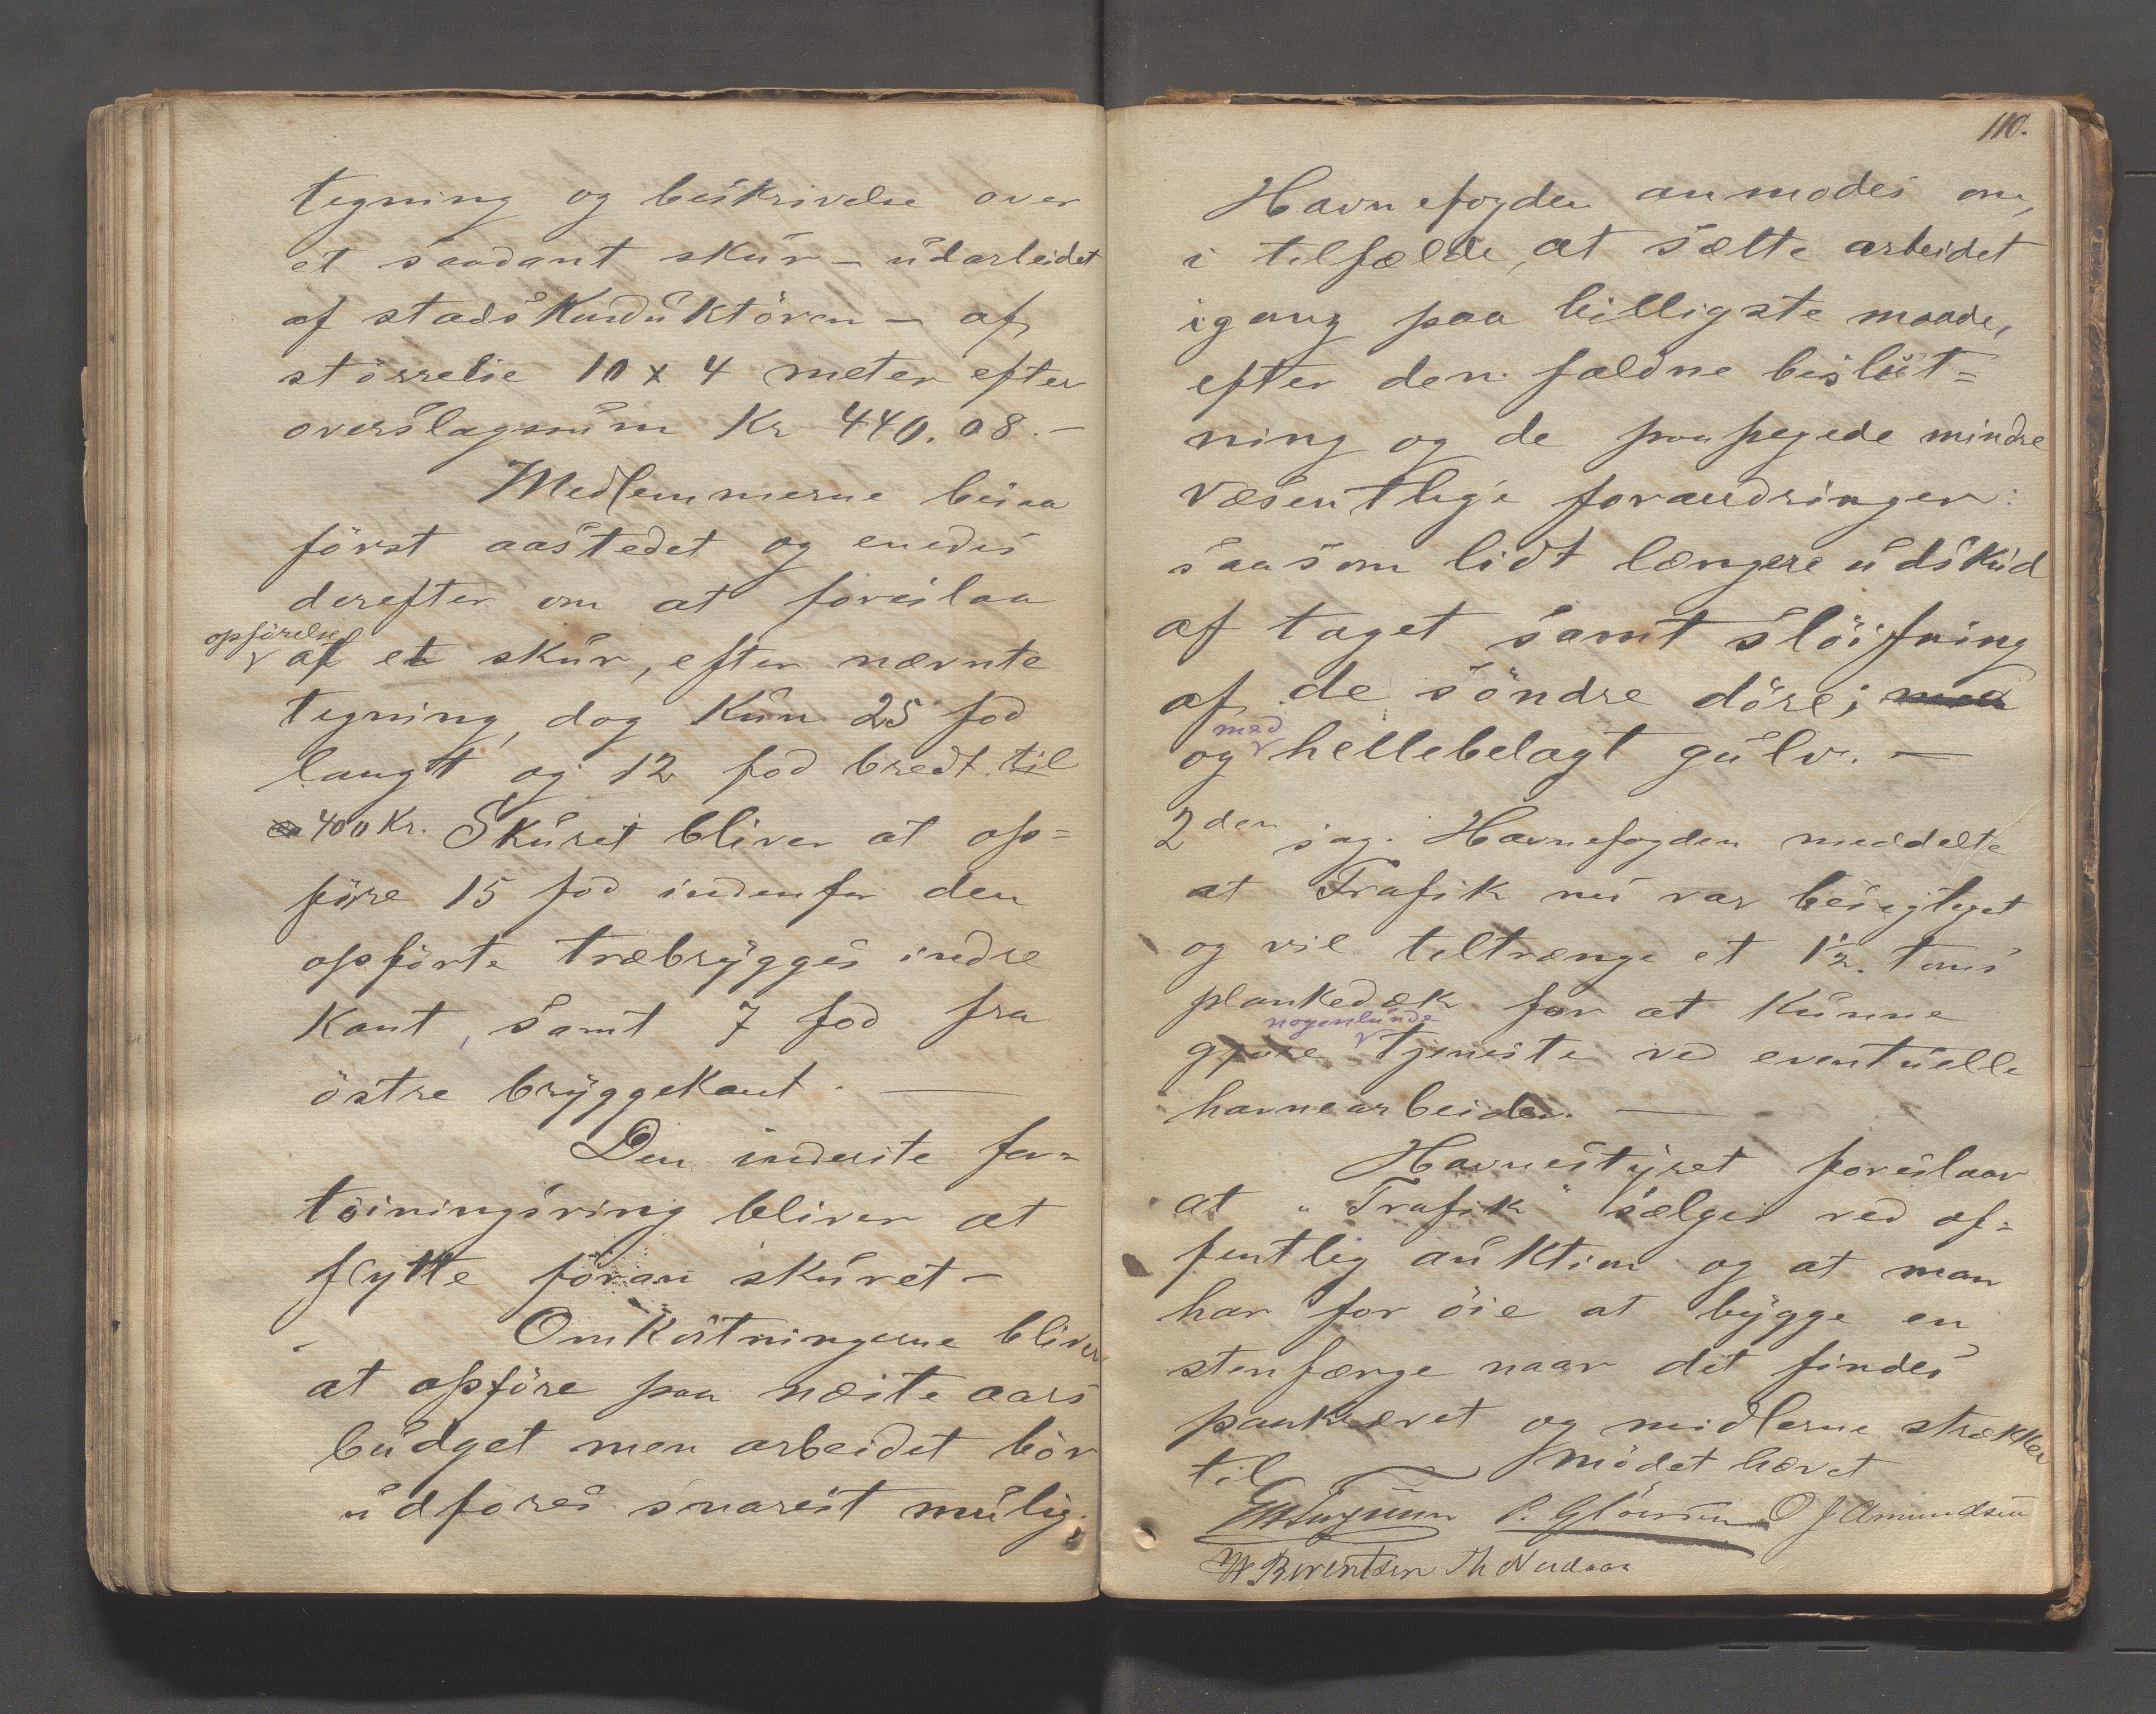 tegning og beskrivelse over
et saadant skur – udarbeidet
af stadskonduktören – af
störrelse 10 x 4 meter efter
overslagssum Kr 440.08. –
Medlemmerne besaa
först aastedet og enedes
derefter om at foreslaa
opförelse
af et skur, efter nævnte
tegning, dog kun 25 fod
langt og 12 fod bredt til
400 Kr. Skuret bliver at op=
före 15 fod indenfor den
opförte træbrygges indre
kant, samt 7 fod fra
östre bryggekant. —
Den inderste for=
töiningsring bliver at
flytte foran skuret –
Omkostningerne bliver
at opföre paa næste aars
budget men arbeidet bör
udföres snarest mulig.
110.
Havnefogden anmodes om,
i tilfælde, at sætte arbeidet
igang paa billigste maade,
efter den fældne beslut=
ning og de paapegede mindre
væsentlige forandringer:
saasom lidt længere udskud
af taget samt slöifning
af de söndre döre;
med
og hellebelagt gulv. —
2den sag. Havnefogden meddelte
at Trafik nu var besigtiget
og vil tiltrænge et 1½ toms
plankedæk for at kunne
nogenlunde
gjøre tjeneste ved eventuelle
havnearbeider. —
Havnestyret foreslaar
at "Trafik" sælges ved of=
fentlig auktion og at man
har for öie at bygge en
stenfærge naar det findes
paakrævet og midlerne strækker
til Mödet hævet
O J Amundsen
W Berentsen